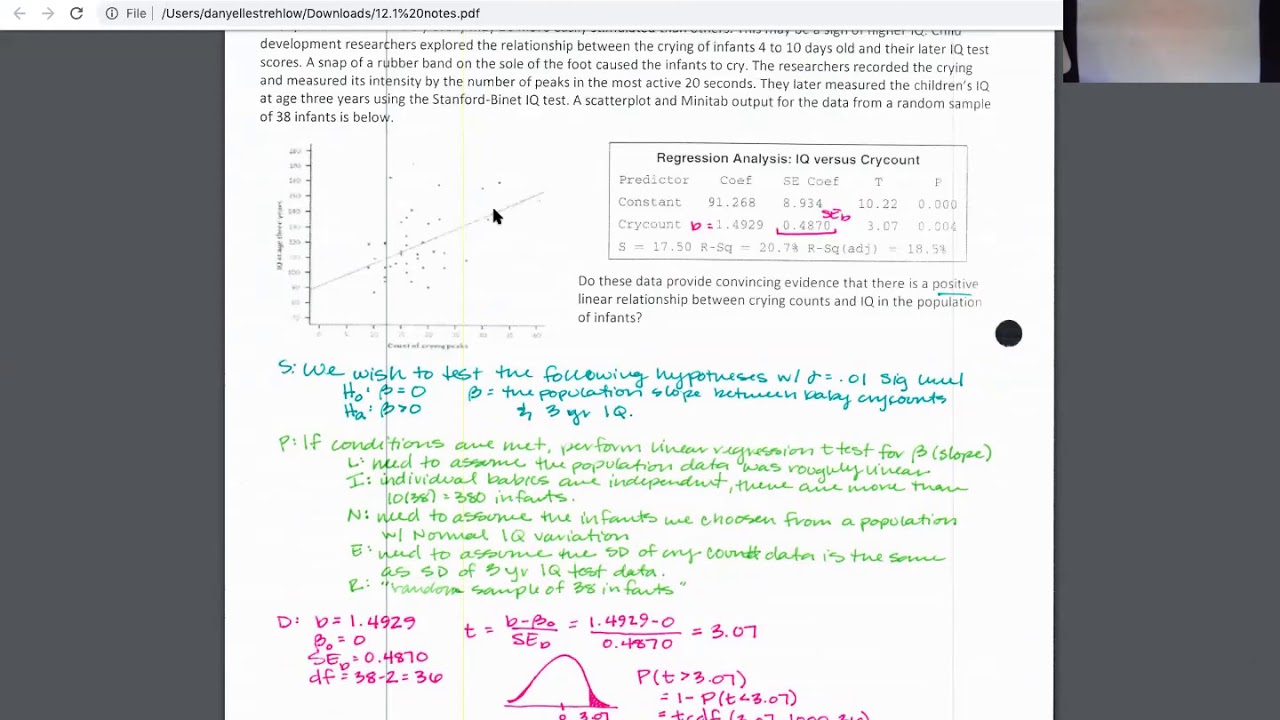 File /Users/danyellestrehlow/Downloads/12.1%20notes.pdf
development researchers explored the relationship between the crying of infants 4 to 10 days old and their later IQ test
scores. A snap of a rubber band on the sole of the foot caused the infants to cry. The researchers recorded the crying
and measured its intensity by the number of peaks in the most active 20 seconds. They later measured the children's IQ
at age three years using the Stanford-Binet IQ test. A scatterplot and Minitab output for the data from a random sample
of 38 infants is below.
IQ at age three years
Count of crying peaks
Regression Analysis: IQ versus Crycount
Predictor Coef SE Coef T P
Constant 91.268 8.934 10.22 0.000
SEb
Crycount b = 1.4929 0.4870 3.07 0.004
S = 17.50 R-Sq = 20.7% R-Sq(adj) = 18.5%
Do these data provide convincing evidence that there is a positive
linear relationship between crying counts and IQ in the population
of infants?
S: We wish to test the following hypotheses w/ α=.01 sig level
H₀: β=0 β = the population slope between baby crycounts
Ha: β>0 & 3 yr IQ.
P: If conditions are met, perform linear regression t test for β (slope)
L: need to assume the population data was roughly linear
I: individual babies are independent, there are more than
10(38) = 380 infants.
N: need to assume the infants we choosen from a population
w/ Normal IQ variation
E: need to assume the SD of cry count data is the same
as SD of 3 yr IQ test data.
R: "random sample of 38 infants"
D: b = 1.4929 t = b-β₀ / SEb = 1.4929-0 / 0.4870 = 3.07
β₀ = 0
SEb = 0.4870
df = 38-2 = 36
P(t>3.07)
= 1- P(t<3.07)
0 3.07